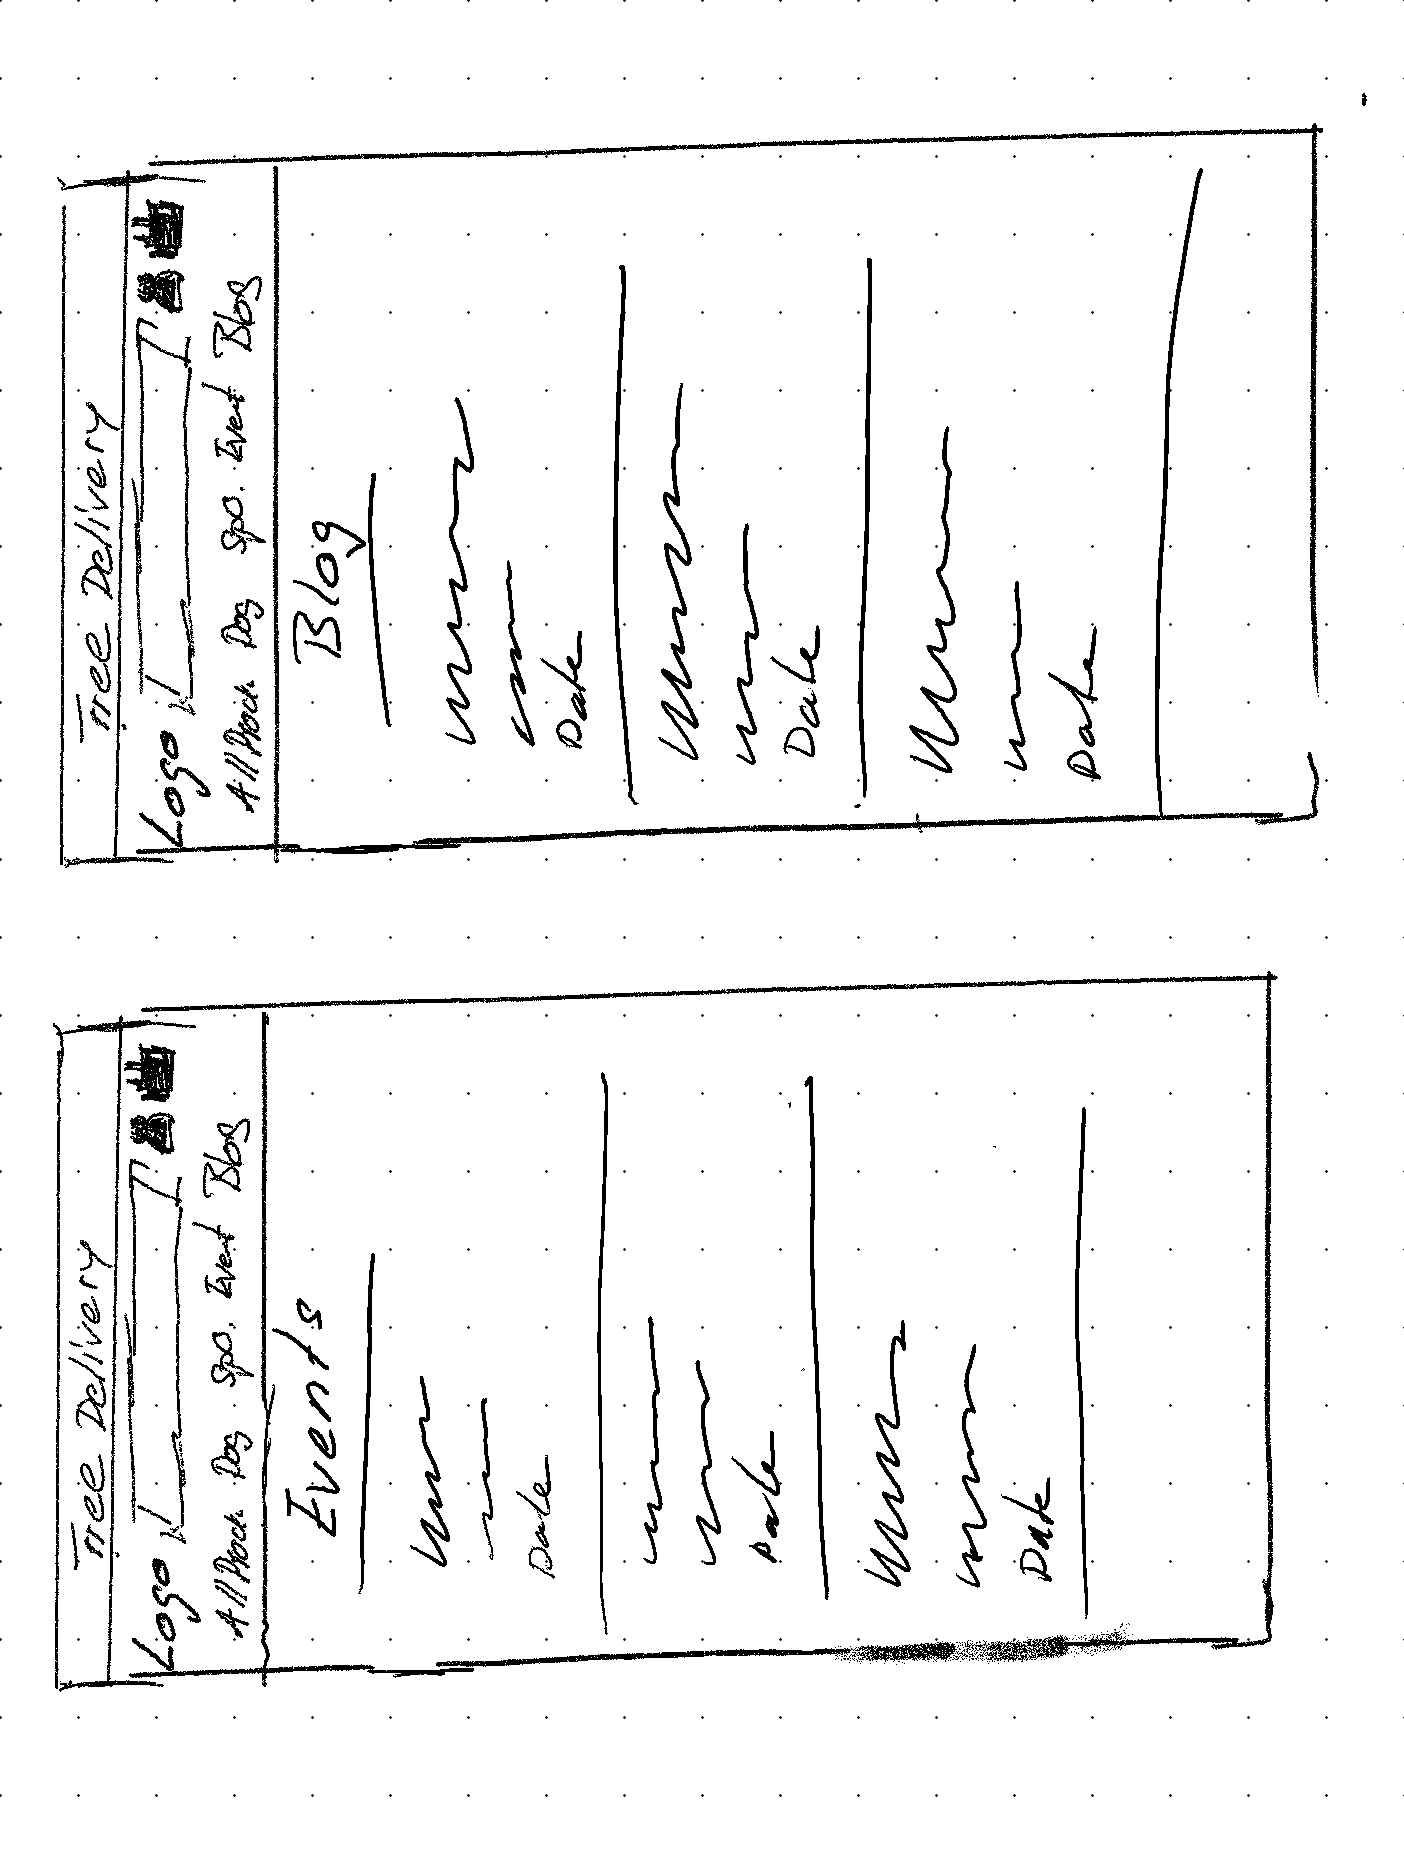 Free Delivery
Logo
All Prod. Dog Spo. Event Blog
Events
Date
Date
Date
Free Delivery
Logo
All Prod. Dog Spo. Event Blog
Blog
Date
Date
Date